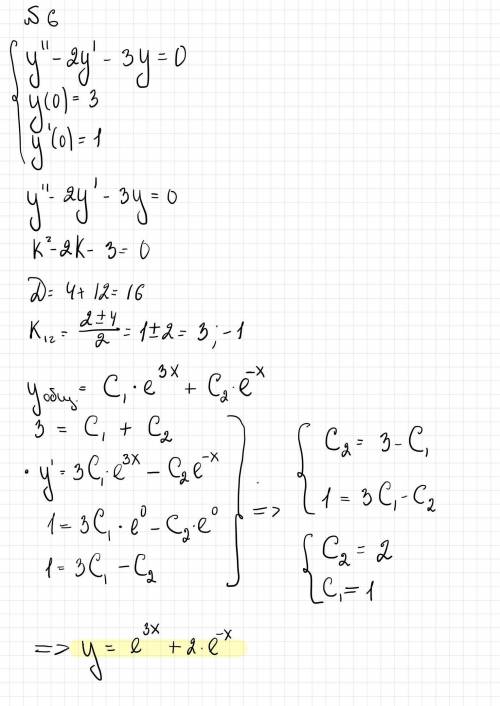 № 6
y'' - 2y' - 3y = 0
y(0) = 3
y'(0) = 1
y'' - 2y' - 3y = 0
K² - 2K - 3 = 0
D = 4 + 12 = 16
K₁₂ = (2 ± 4)/2 = 1 ± 2 = 3 ; -1
y общ. = C₁ · e^(3x) + C₂ · e^(-x)
3 = C₁ + C₂
· y' = 3C₁ · e^(3x) - C₂e^(-x)
1 = 3C₁ · e⁰ - C₂ · e⁰
1 = 3C₁ - C₂
=>
C₂ = 3 - C₁
1 = 3C₁ - C₂
C₂ = 2
C₁ = 1
=> y = e^(3x) + 2 · e^(-x)